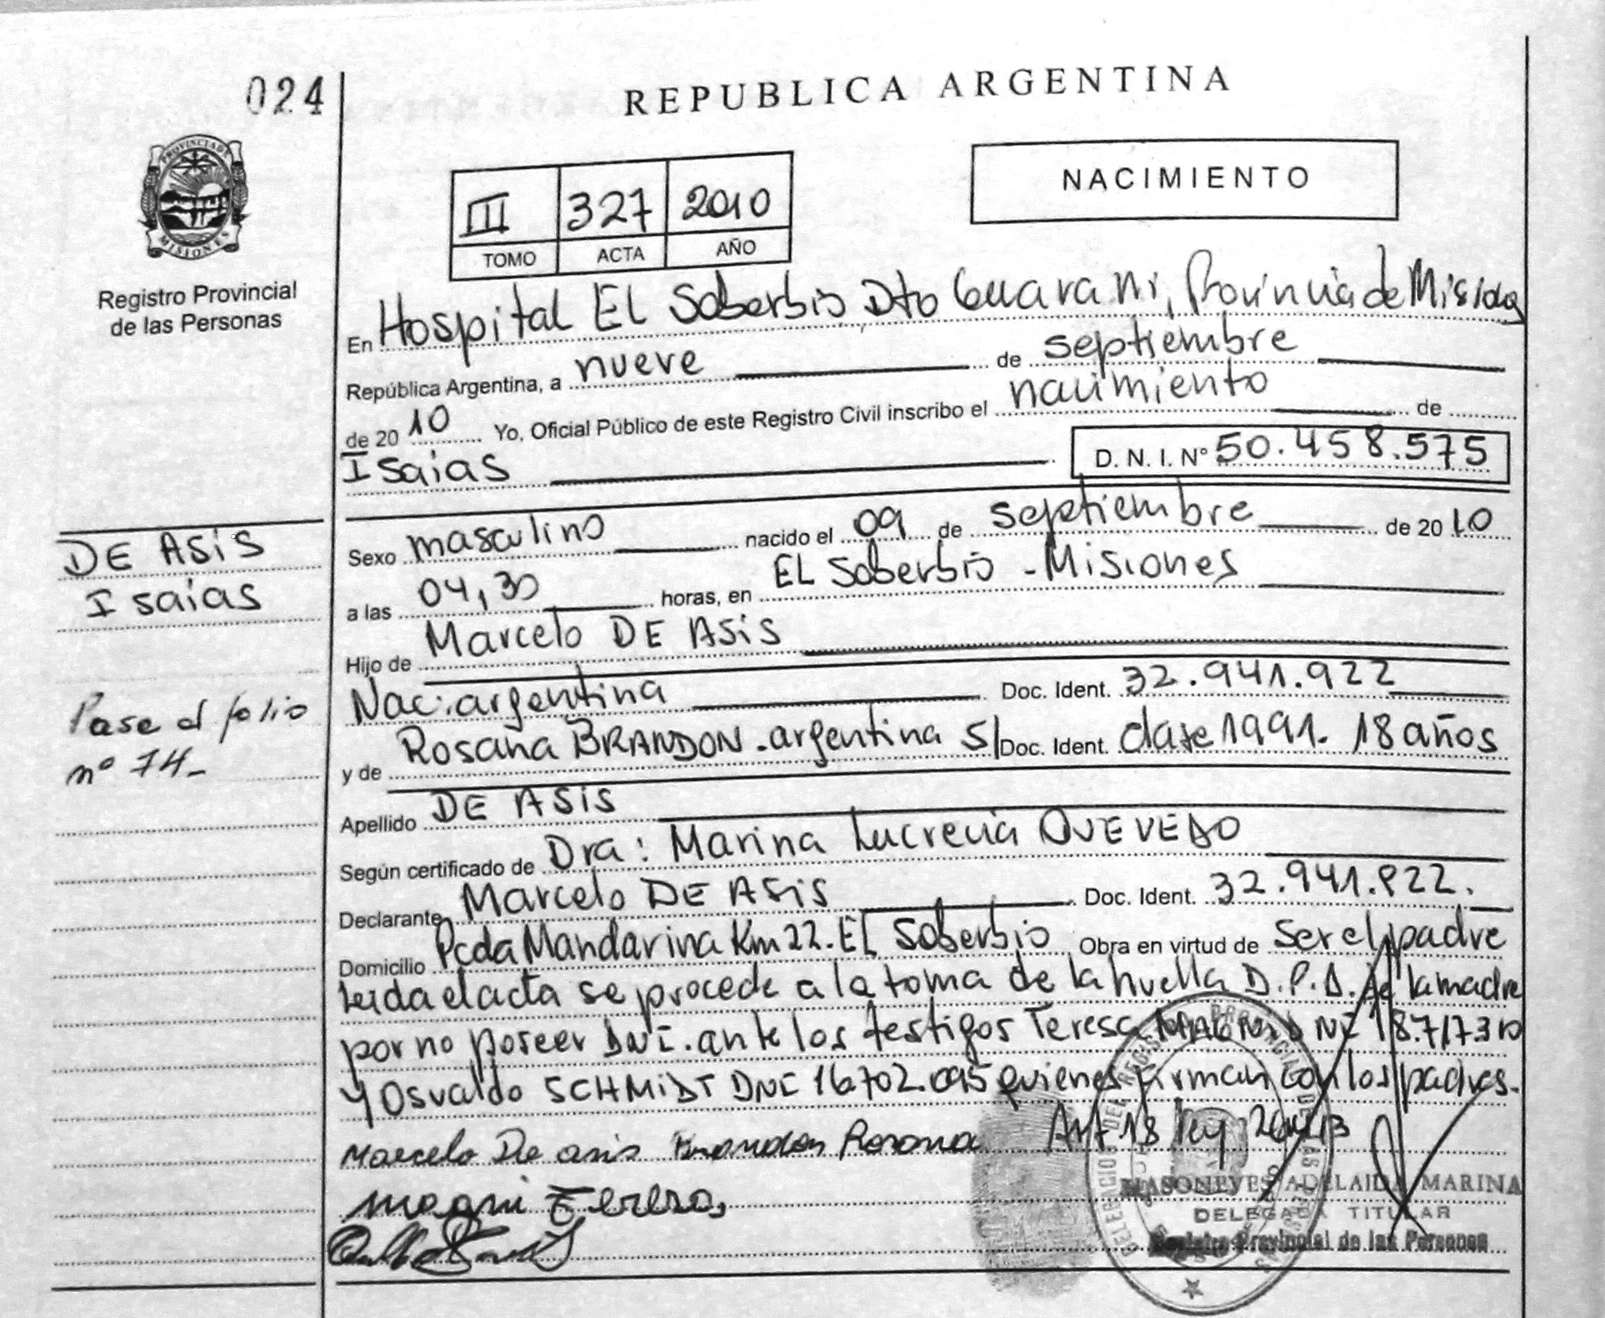 024
REPUBLICA ARGENTINA
PROVINCIA DE
MISIONES
Registro Provincial
de las Personas
NACIMIENTO
III 327 2010
TOMO ACTA AÑO
En Hospital EL Soberbio Dto Guarani, Provincia de Misiones
República Argentina, a nueve de septiembre
de 2010 Yo, Oficial Público de este Registro Civil inscribo el nacimiento de
Isaias D. N. I. Nº 50.458.575
DE ASIS
Isaias
Sexo masculino nacido el 09 de septiembre de 2010
a las 04,30 horas, en EL Soberbio - Misiones
Hijo de Marcelo DE ASIS
Nac: argentina Doc. Ident. 32.941.922
Pase al folio
nº 74-
y de Rosana BRANDON. argentina S/ Doc. Ident. clase 1991. 18 años
Apellido DE ASIS
Según certificado de Dra: Marina Lucrecia QUEVEDO
Declarante Marcelo DE ASIS Doc. Ident. 32.941.922.
Domicilio Pcda Mandarina Km 22. EL Soberbio Obra en virtud de Ser el padre
Leida el acta se procede a la toma de la huella D.P.D. de la madre
por no poseer DNI. ante los testigos Teresa DNI 18.717.310
y Osvaldo SCHMIDT DNI 16.702.095 quienes firman con los padres.
Marcelo De asis Brandon Rosana Art 18 ley 26413
magni Teresa
MASONEVES ADELAIDA MARINA
DELEGADA TITULAR
Registro Provincial de las Personas